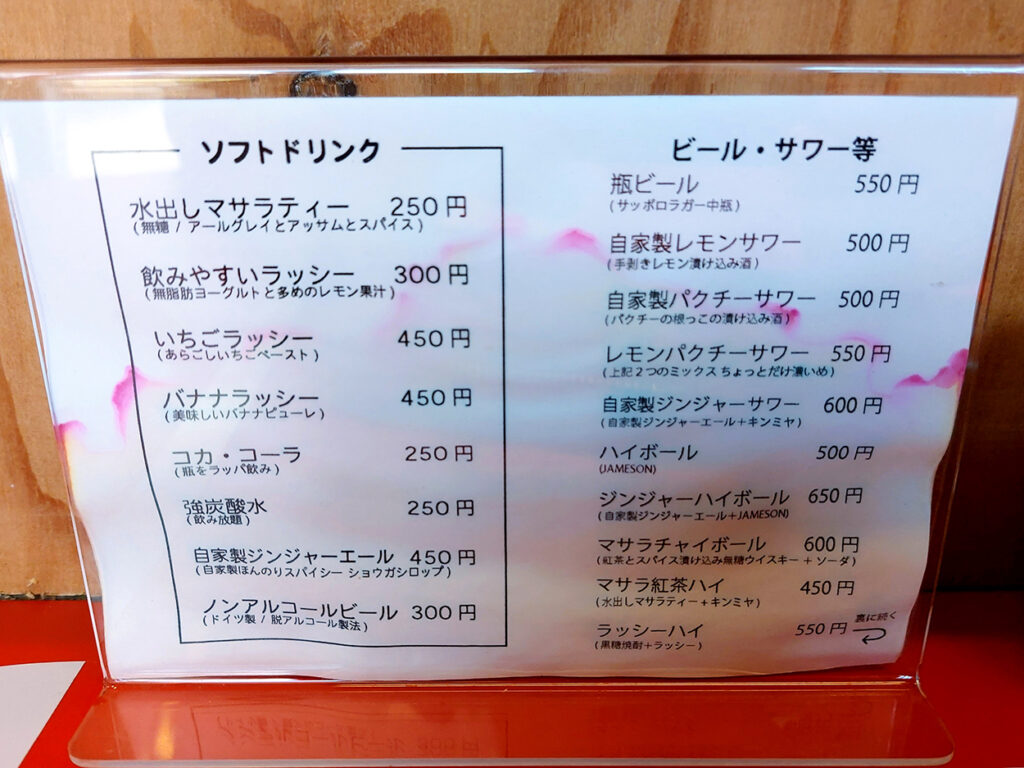 ソフトドリンク
水出しマサラティー 250円
(無糖 / アールグレイとアッサムとスパイス)
飲みやすいラッシー 300円
(無脂肪ヨーグルトと多めのレモン果汁)
いちごラッシー 450円
(あらごしいちごペースト)
バナナラッシー 450円
(美味しいバナナピューレ)
コカ・コーラ 250円
(瓶をラッパ飲み)
強炭酸水 250円
(飲み放題)
自家製ジンジャーエール 450円
(自家製ほんのりスパイシー ショウガシロップ)
ノンアルコールビール 300円
(ドイツ製 / 脱アルコール製法)
ビール・サワー等
瓶ビール 550円
(サッポロラガー中瓶)
自家製レモンサワー 500円
(手剥きレモン漬け込み酒)
自家製パクチーサワー 500円
(パクチーの根っこの漬け込み酒)
レモンパクチーサワー 550円
(上記2つのミックス ちょっとだけ濃いめ)
自家製ジンジャーサワー 600円
(自家製ジンジャーエール+キンミヤ)
ハイボール 500円
(JAMESON)
ジンジャーハイボール 650円
(自家製ジンジャーエール+JAMESON)
マサラチャイボール 600円
(紅茶とスパイス漬け込み無糖ウイスキー + ソーダ)
マサラ紅茶ハイ 450円
(水出しマサラティー+キンミヤ)
ラッシーハイ 550円
(黒糖焼酎+ラッシー)
裏に続く